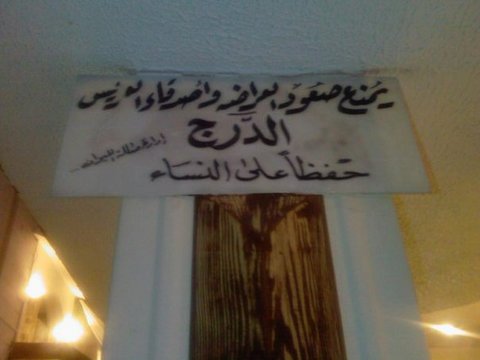 يمنع صعود العراضه واصدقاء العريس
الدَّرج
حفظاً على النساء